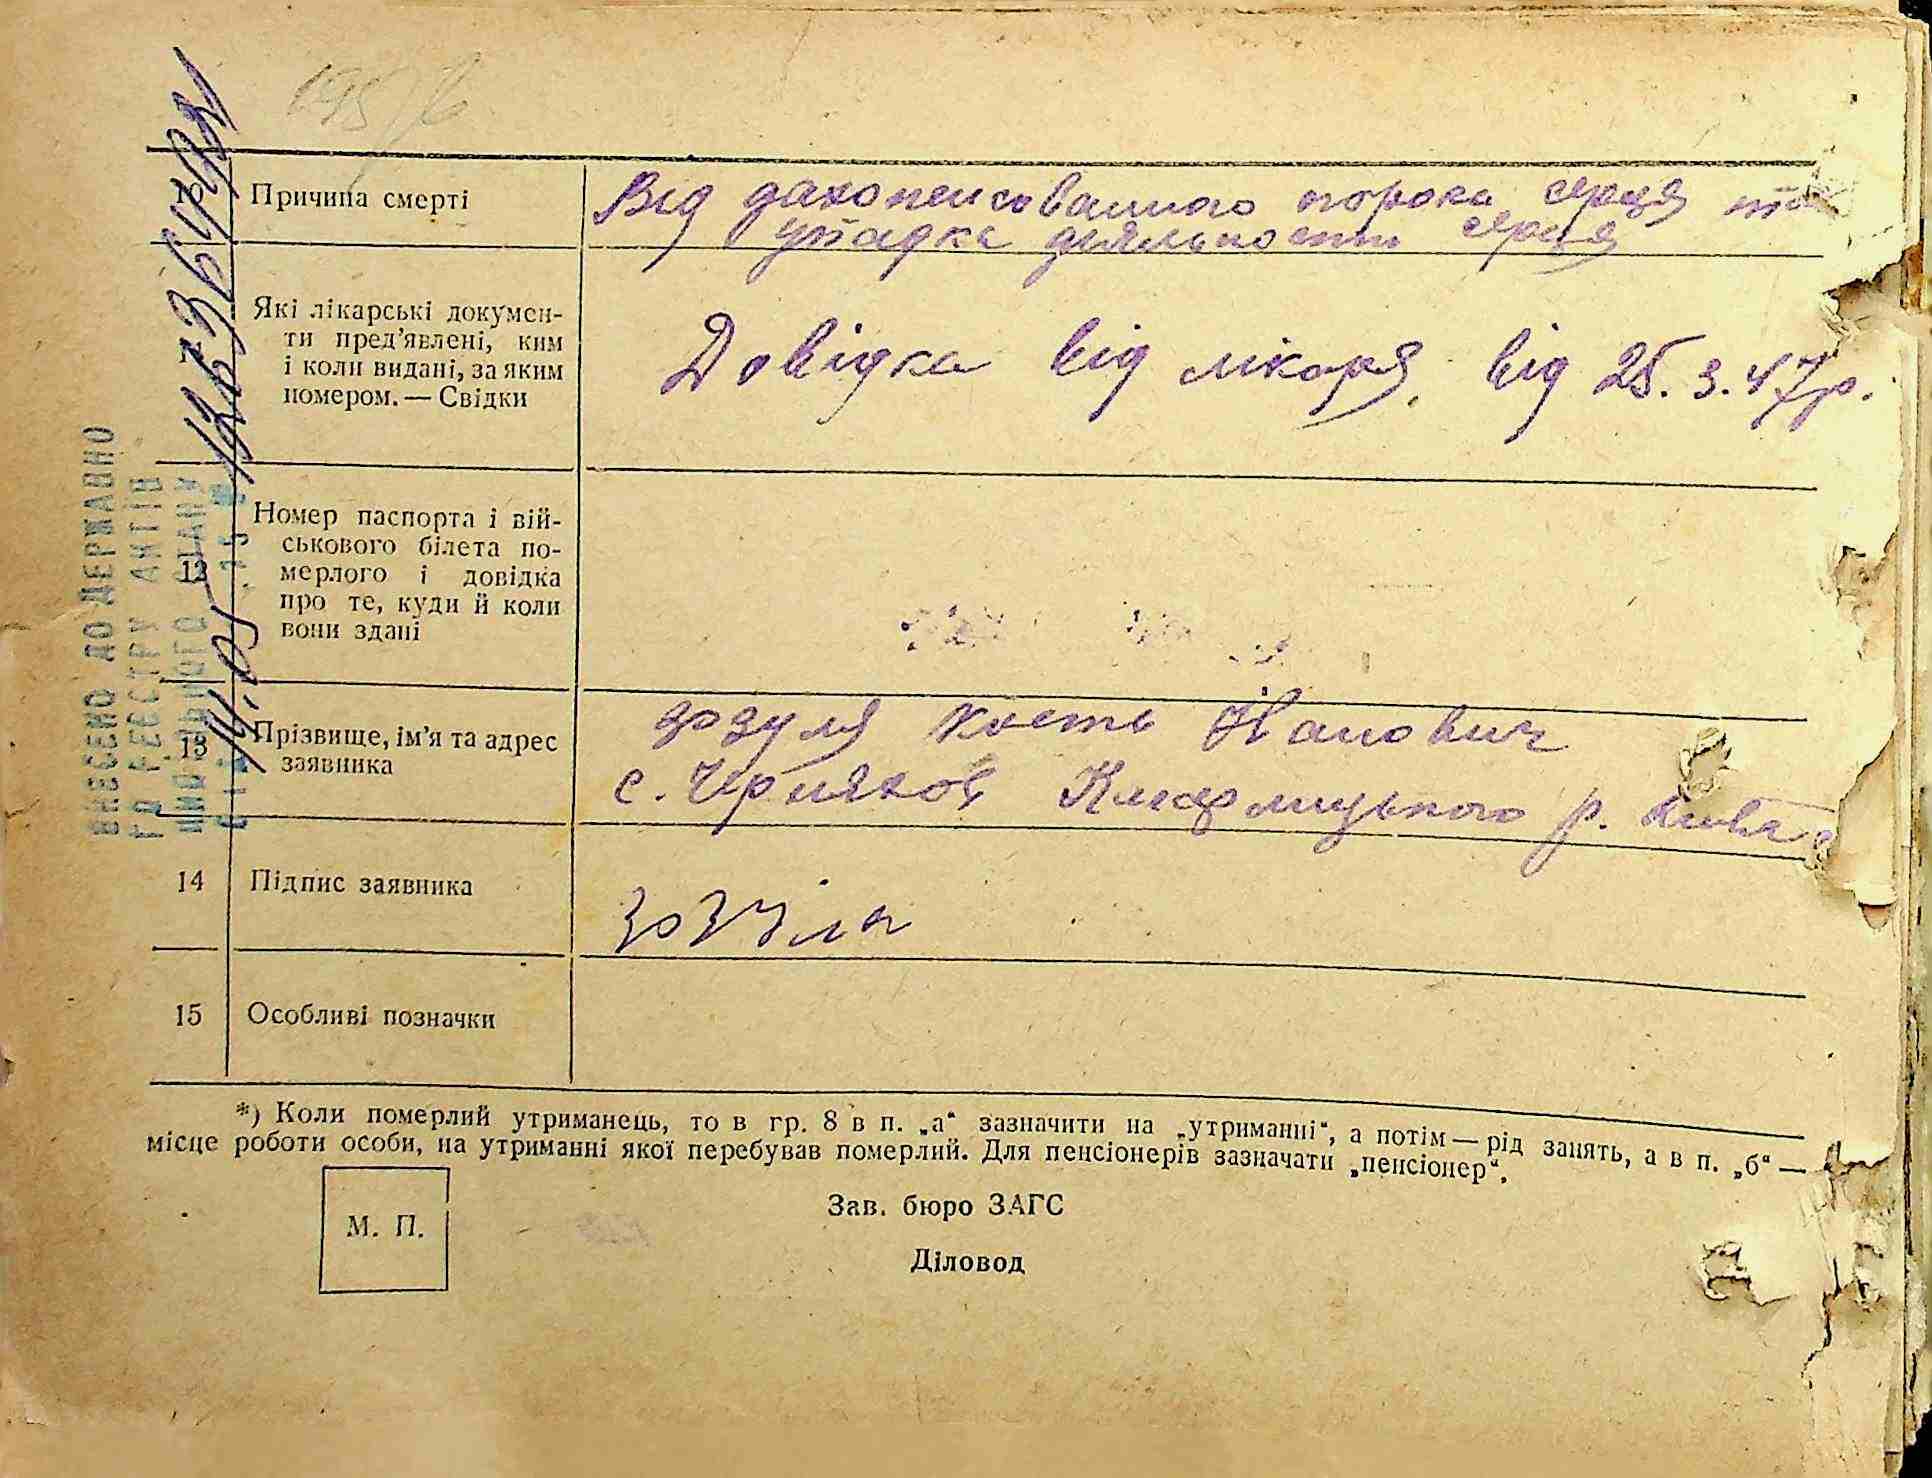 Причина смерті
Від дахопенсованного порока серця та
упадка діяльности серця
Які лікарські докумен-
ти пред'явлені, ким
і коли видані, за яким
номером. — Свідки
Довідка від лікаря від 25.3.47р.
12
Номер паспорта і вій-
ськового білета по-
мерлого і довідка
про те, куди й коли
вони здані
13
Прізвище, ім'я та адрес
заявника
Зозуля Кость Іванович
с. Черняхов Кагарлицького р. Київ
14
Підпис заявника
Зозуля
15
Особливі позначки
*) Коли померлий утриманець, то в гр. 8 в п. „а“ зазначити на „утриманні“, а потім — рід занять, а в п. „б“ —
місце роботи особи, на утриманні якої перебував померлий. Для пенсіонерів зазначати „пенсіонер“.
М. П.
Зав. бюро ЗАГС
Діловод
ВНЕСЕНО ДО ДЕРЖАВНО
ГО РЕЄСТРУ АКТІВ
ЦИВІЛЬНОГО СТАНУ